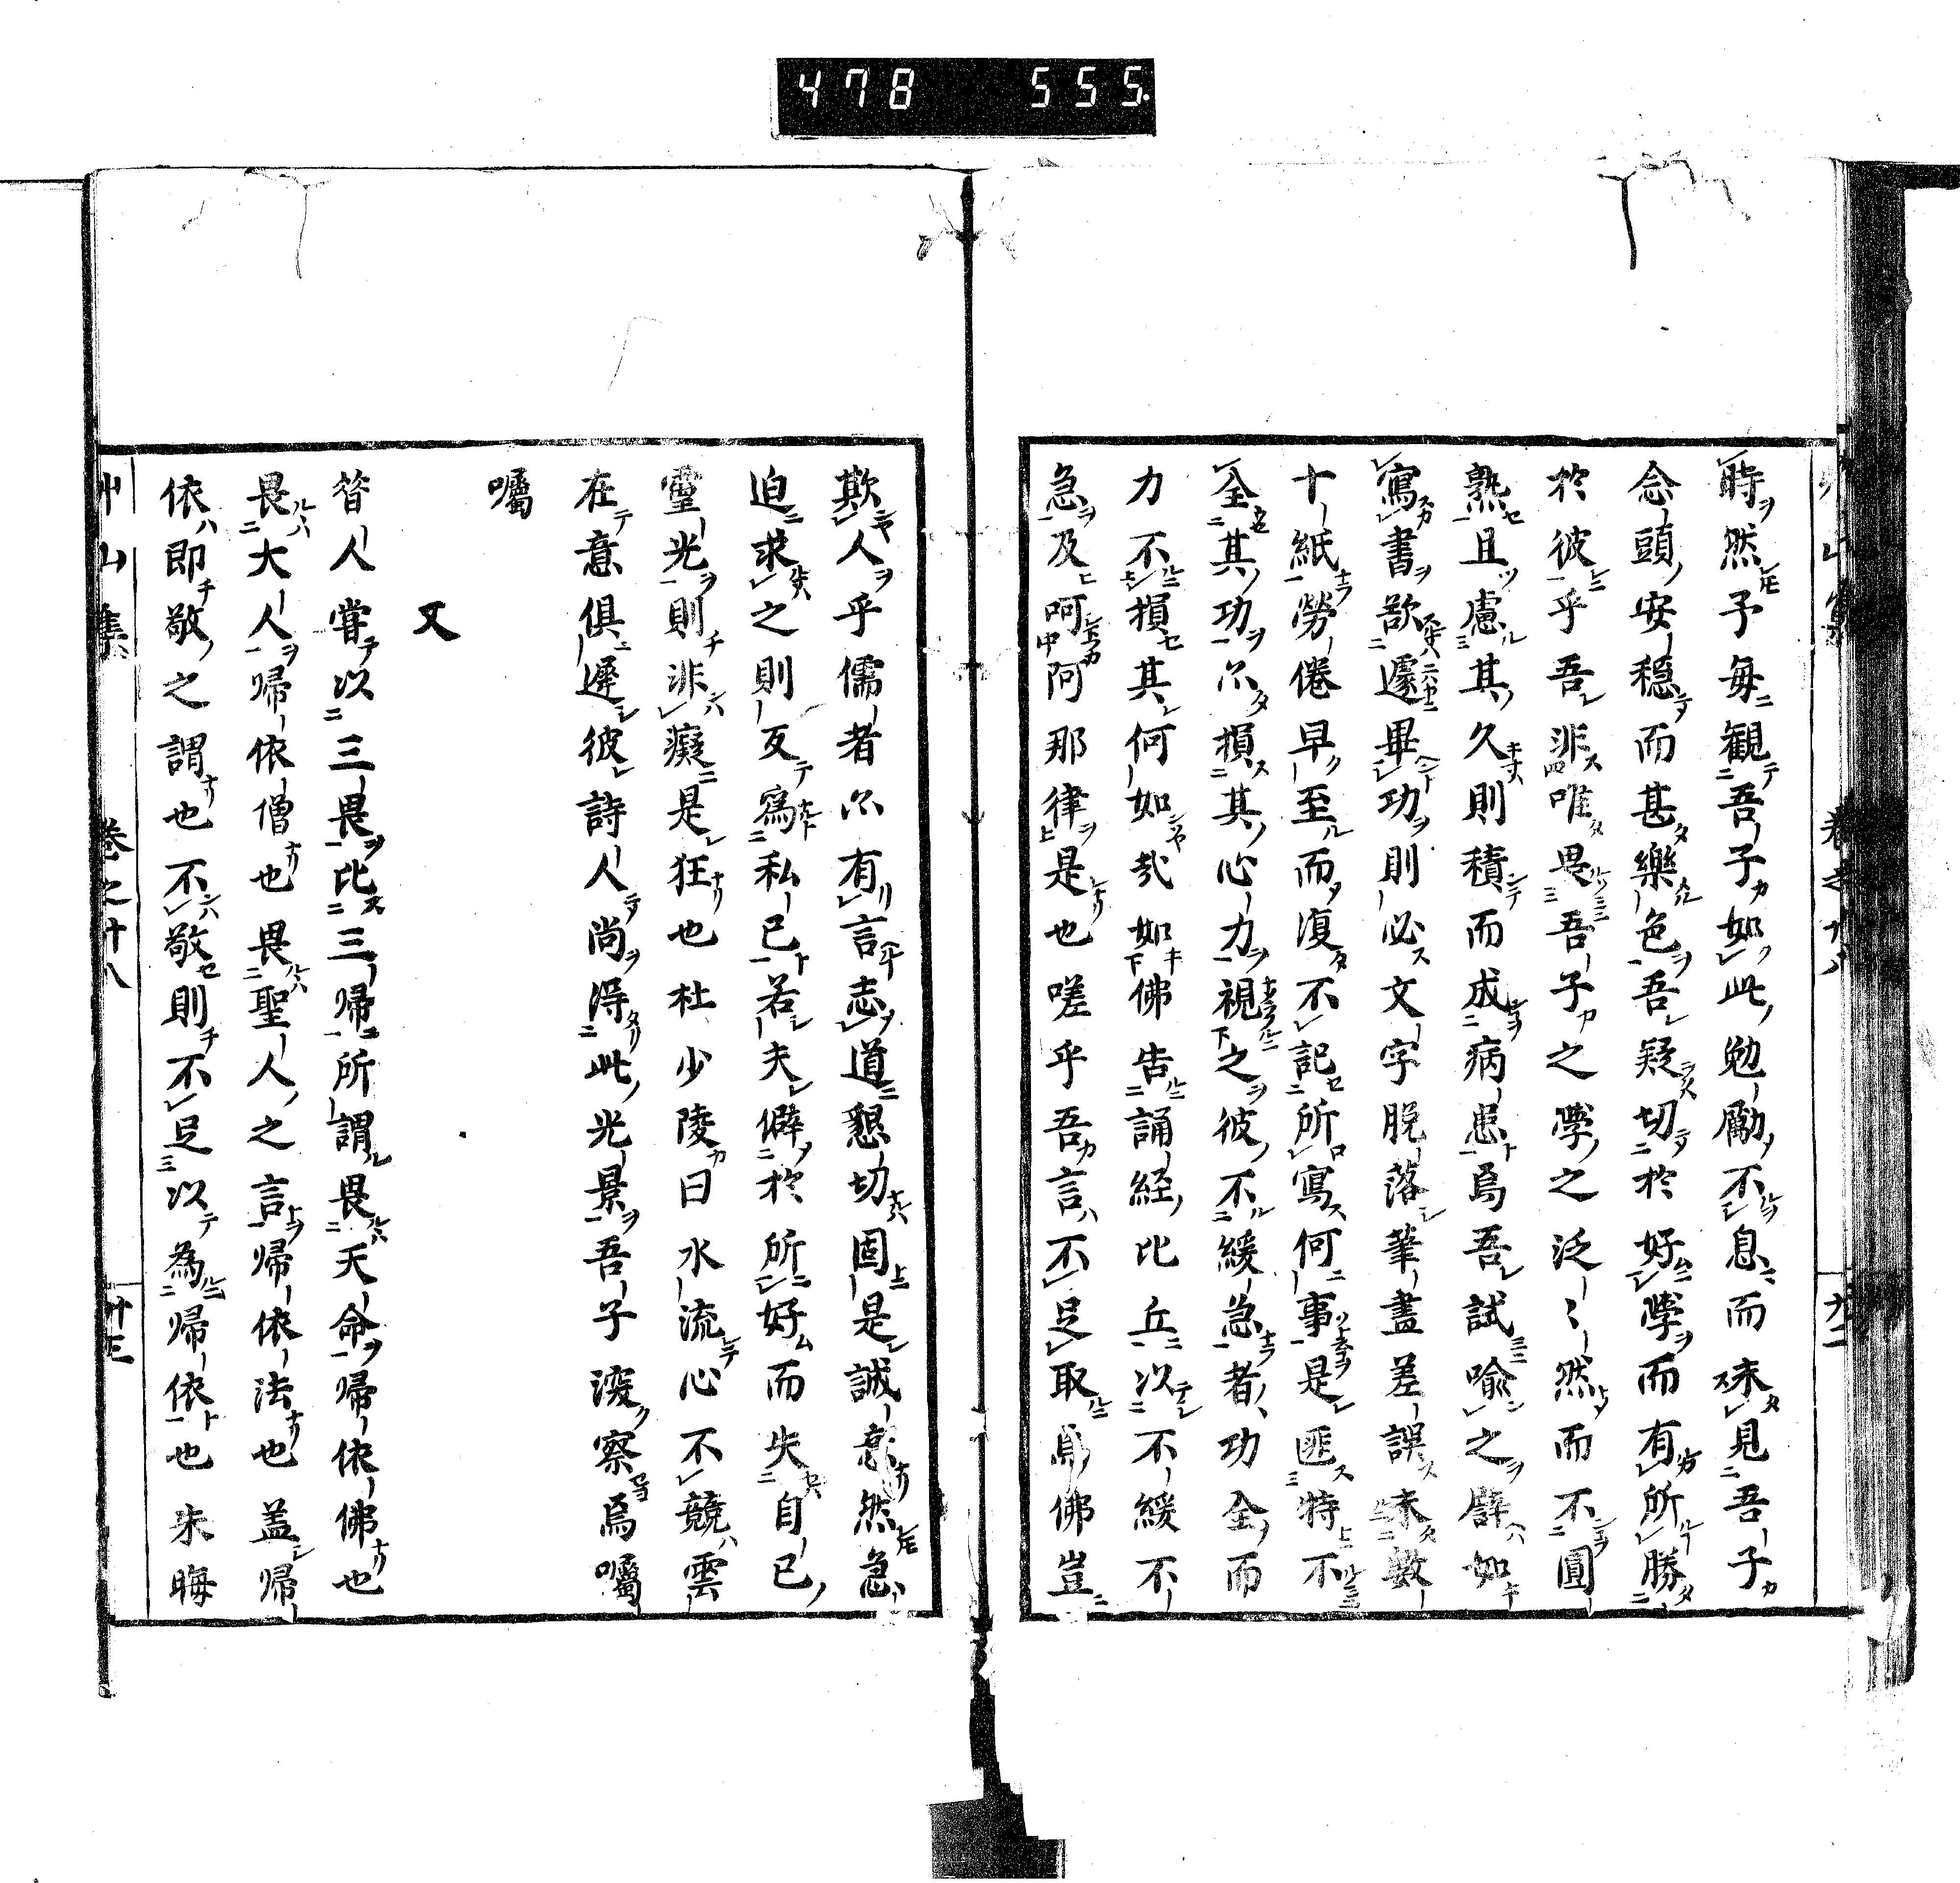 478 555.
時然予毎観吾子如此勉勵不息而未見吾子
念頭安穏而甚樂色吾疑切於好學而有所勝
於彼乎吾非唯畏吾子之學之泛〻然而不圓
熟且慮其久則積而成病患焉吾試喩之譬如
寫書欲遽畢功則必文字脱落筆畫差誤未數
十紙勞倦早至而復不記所寫何事是匪特不
全其功尓損其心力視之彼不緩急者功全而
力不損其何如哉如佛告誦経比丘以不緩不
急及呵阿那律是也嗟乎吾言不足取焉佛豈
欺人乎儒者尓有言志道懇切固是誠意然急
迫求之則反為私己若夫僻於所好而失自己
靈光則非癡是狂也杜少陵曰水流心不競雲
在意俱遲彼詩人尚得此光景吾子深察焉囑
囑
又
昔人嘗以三畏比三帰所謂畏天命帰依佛也
畏大人帰依僧也畏聖人之言帰依法也盖帰
依即敬之謂也不敬則不足以為帰依也朱晦
艸山集 巻之十八 卅三